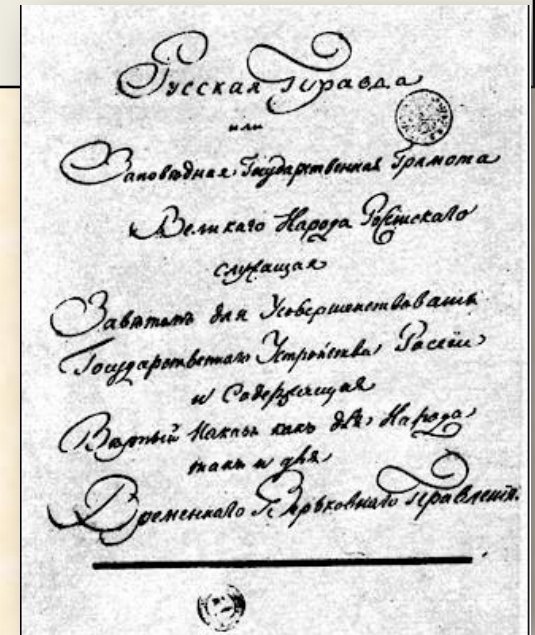 Русская Правда
или
Заповѣдная Государственная Грамота
Великаго Народа Россiйскаго
служащая
Завѣтомъ для Усовершенствованiя
Государственнаго Устройства Россiи
и Содержащая
Вѣрный Наказъ какъ для Народа
такъ и для
Временнаго Верьховнаго Правленiя.